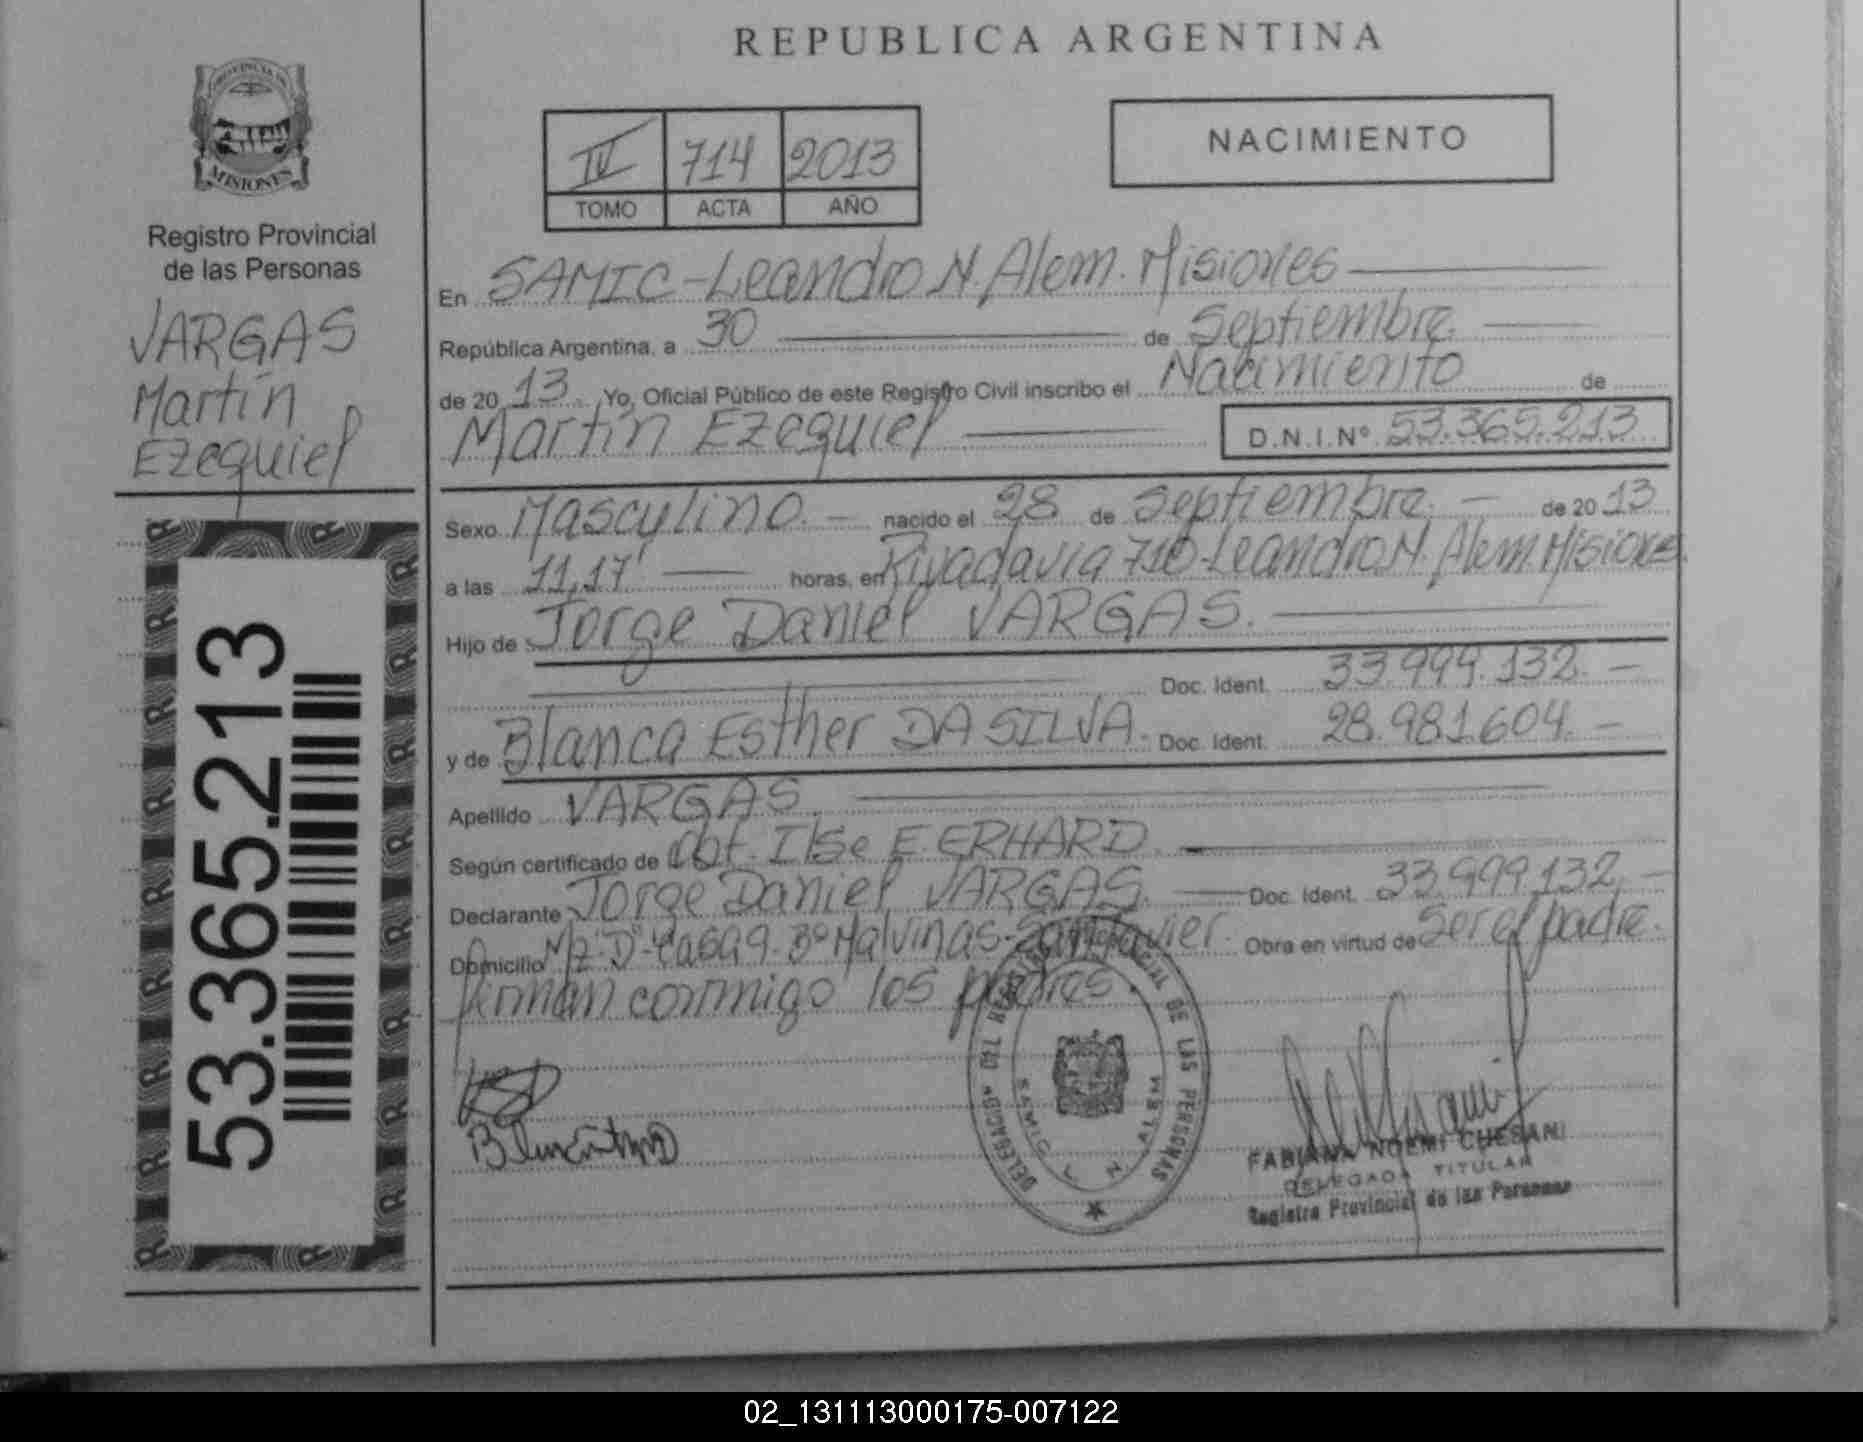 REPUBLICA ARGENTINA
PROVINCIA DE
MISIONES
Registro Provincial
de las Personas
VARGAS
Martín
Ezequiel
53.365.213
IV 714 2013
TOMO ACTA AÑO
NACIMIENTO
En SAMIC-Leandro N. Alem. Misiones
República Argentina, a 30 de Septiembre.
de 20 13 Yo, Oficial Público de este Registro Civil inscribo el Nacimiento de
Martín Ezequiel D.N.I.Nº 53.365.213
Sexo Masculino. nacido el 28 de Septiembre. de 20 13
a las 11,17' horas, en Rivadavia 710-Leandro N. Alem. Misiones.
Hijo de Jorge Daniel VARGAS.
Doc. Ident. 33.999.132.-
y de Blanca Esther DA SILVA. Doc. Ident. 28.981.604.-
Apellido VARGAS.
Según certificado de Obt. Ilse E. ERHARD.
Declarante Jorge Daniel VARGAS. Doc. Ident. 33.999.132.-
Domicilio Mz "D"-Casa 9. Bº Malvinas-San Javier. Obra en virtud de Ser el padre.
firman conmigo los padres.
DELEGACION DEL REGISTRO PROVINCIAL DE LAS PERSONAS
SAMIC L. N. ALEM
FABIANA NOEMI CHESANI
DELEGADA TITULAR
Registro Provincial de las Personas
02_131113000175-007122